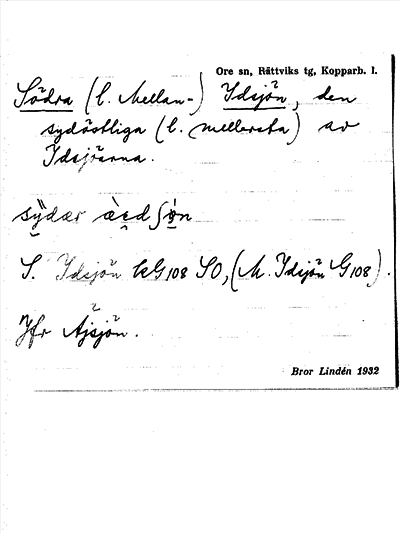 Ore sn, Rättviks tg, Kopparb. l.
Södra (l. Mellan-) Idsjön, den
sydöstliga (l. mellersta) av
Idsjöarna.
S. Idsjön kG108 SO, (M. Idsjön G108).
Jfr Ajsjön.
Bror Lindén 1932